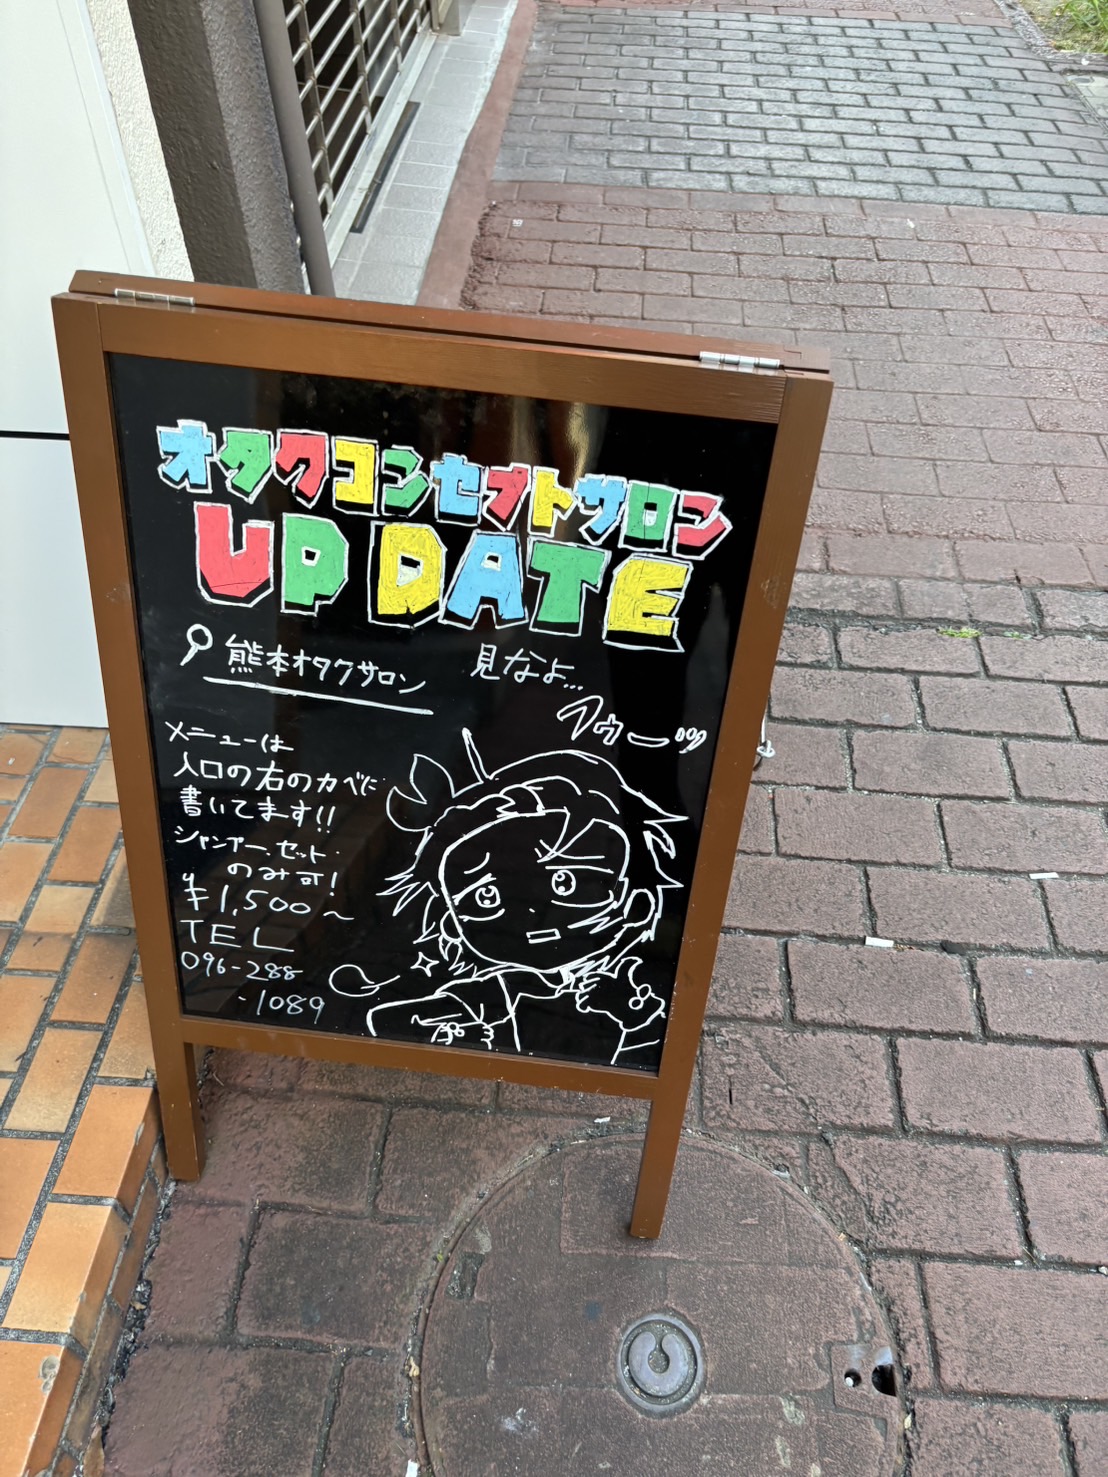 オタクコンセプトサロン
UP DATE
熊本オタクサロン
見なよ...
メニューは
入口の右のカベに
書いてます!!
シャンプー、セット
のみ可!
¥1,500～
TEL
096-288
-1089